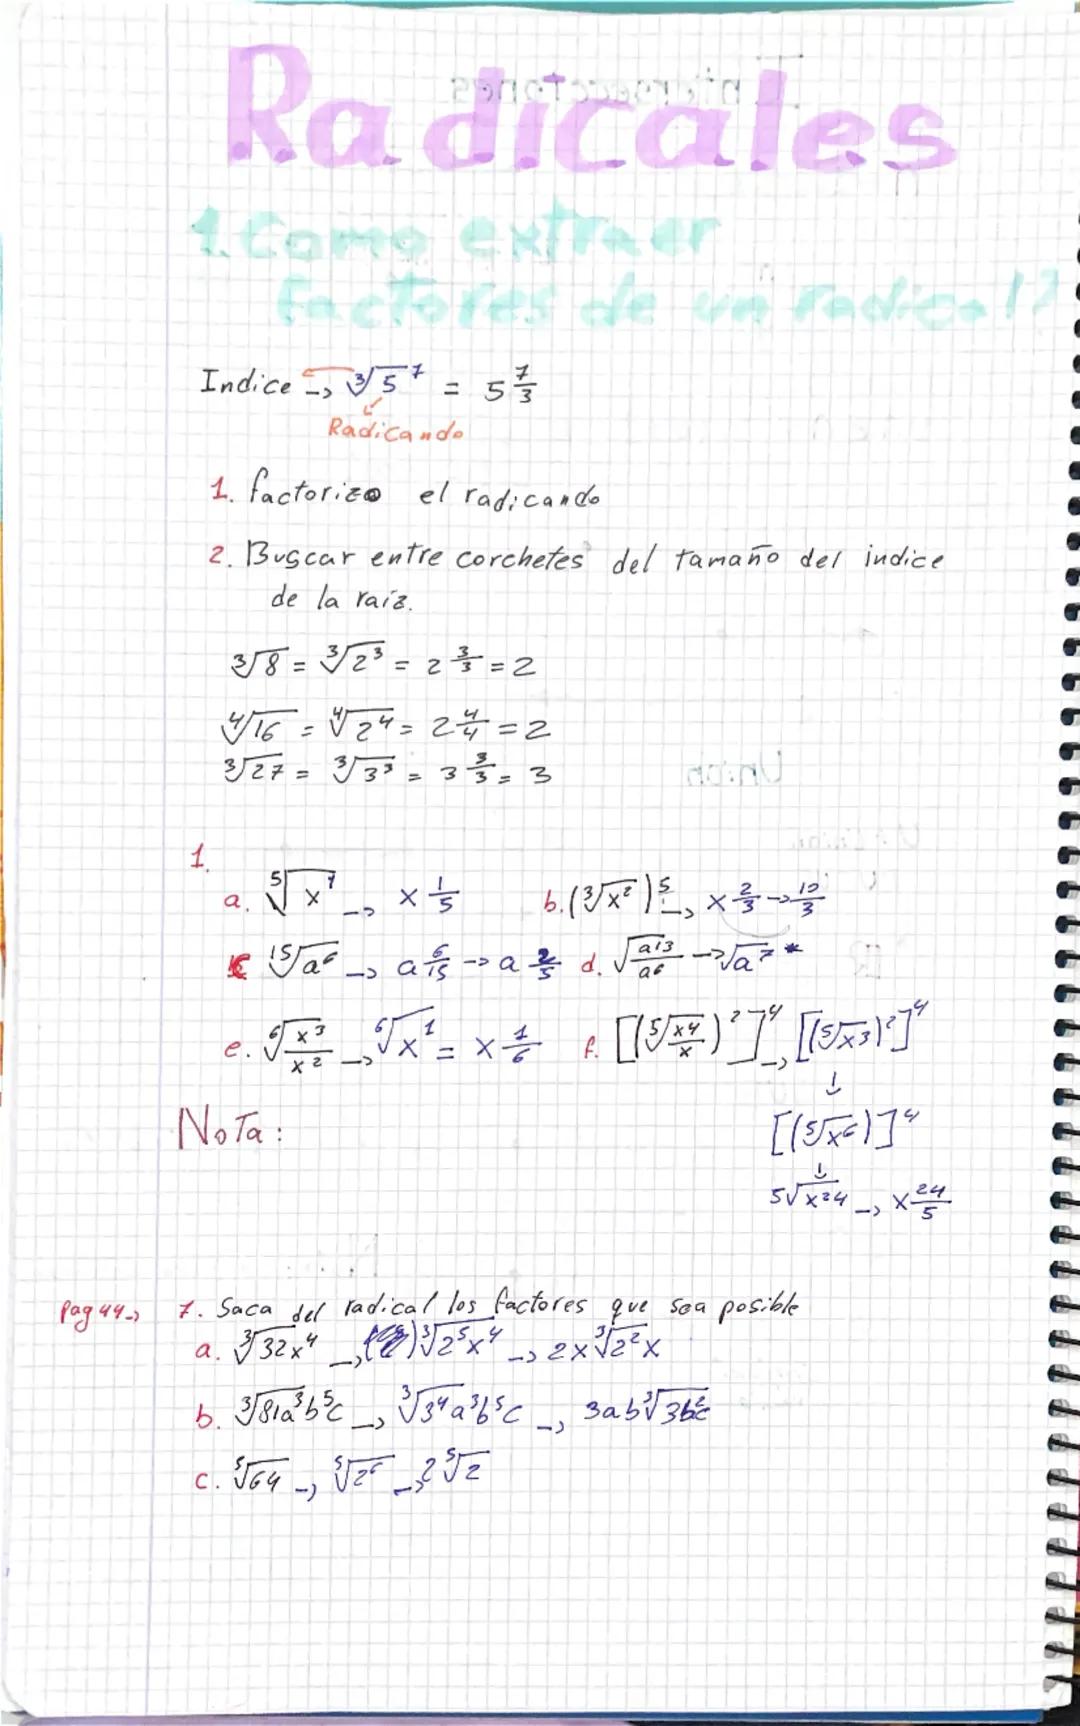 Radicales
1. Como extraer
Factores de un radical!?
Indice → ∛5⁷ = 5^(7/3)
Radicando
1. factorizo el radicando
2. Buscar entre corchetes del tamaño del indice
de la raiz.
∛8 = ∛2³ = 2^(3/3) = 2
∜16 = ∜2⁴ = 2^(4/4) = 2
∛27 = ∛3³ = 3^(3/3) = 3
1.
a. ⁵√x¹ → x^(1/5) b. (∛x²)⁵ → x^(2/3) → 10/3
c ¹⁵√a⁶ → a^(6/15) → a^(2/5) d. √(a13/a⁶) → √a⁷ *
e. ⁶√(x³/x²) → ⁶√x¹ = x^(1/6) f. [(⁵√(x4/x))²]⁴ → [(⁵√x3)²]⁴
↓
Nota: [(⁵√x⁶)]⁴
↓
5√x²4 → x^(24/5)
Pag 44→ 7. Saca del radical los factores que sea posible
a. ∛32x⁴ → ∛2⁵x⁴ → 2x∛2²x
b. ∛81a³b⁵c → ∛3⁴a³b⁵c → 3ab∛3b²c
c. ⁵√64 → ⁵√2⁶ → 2⁵√2